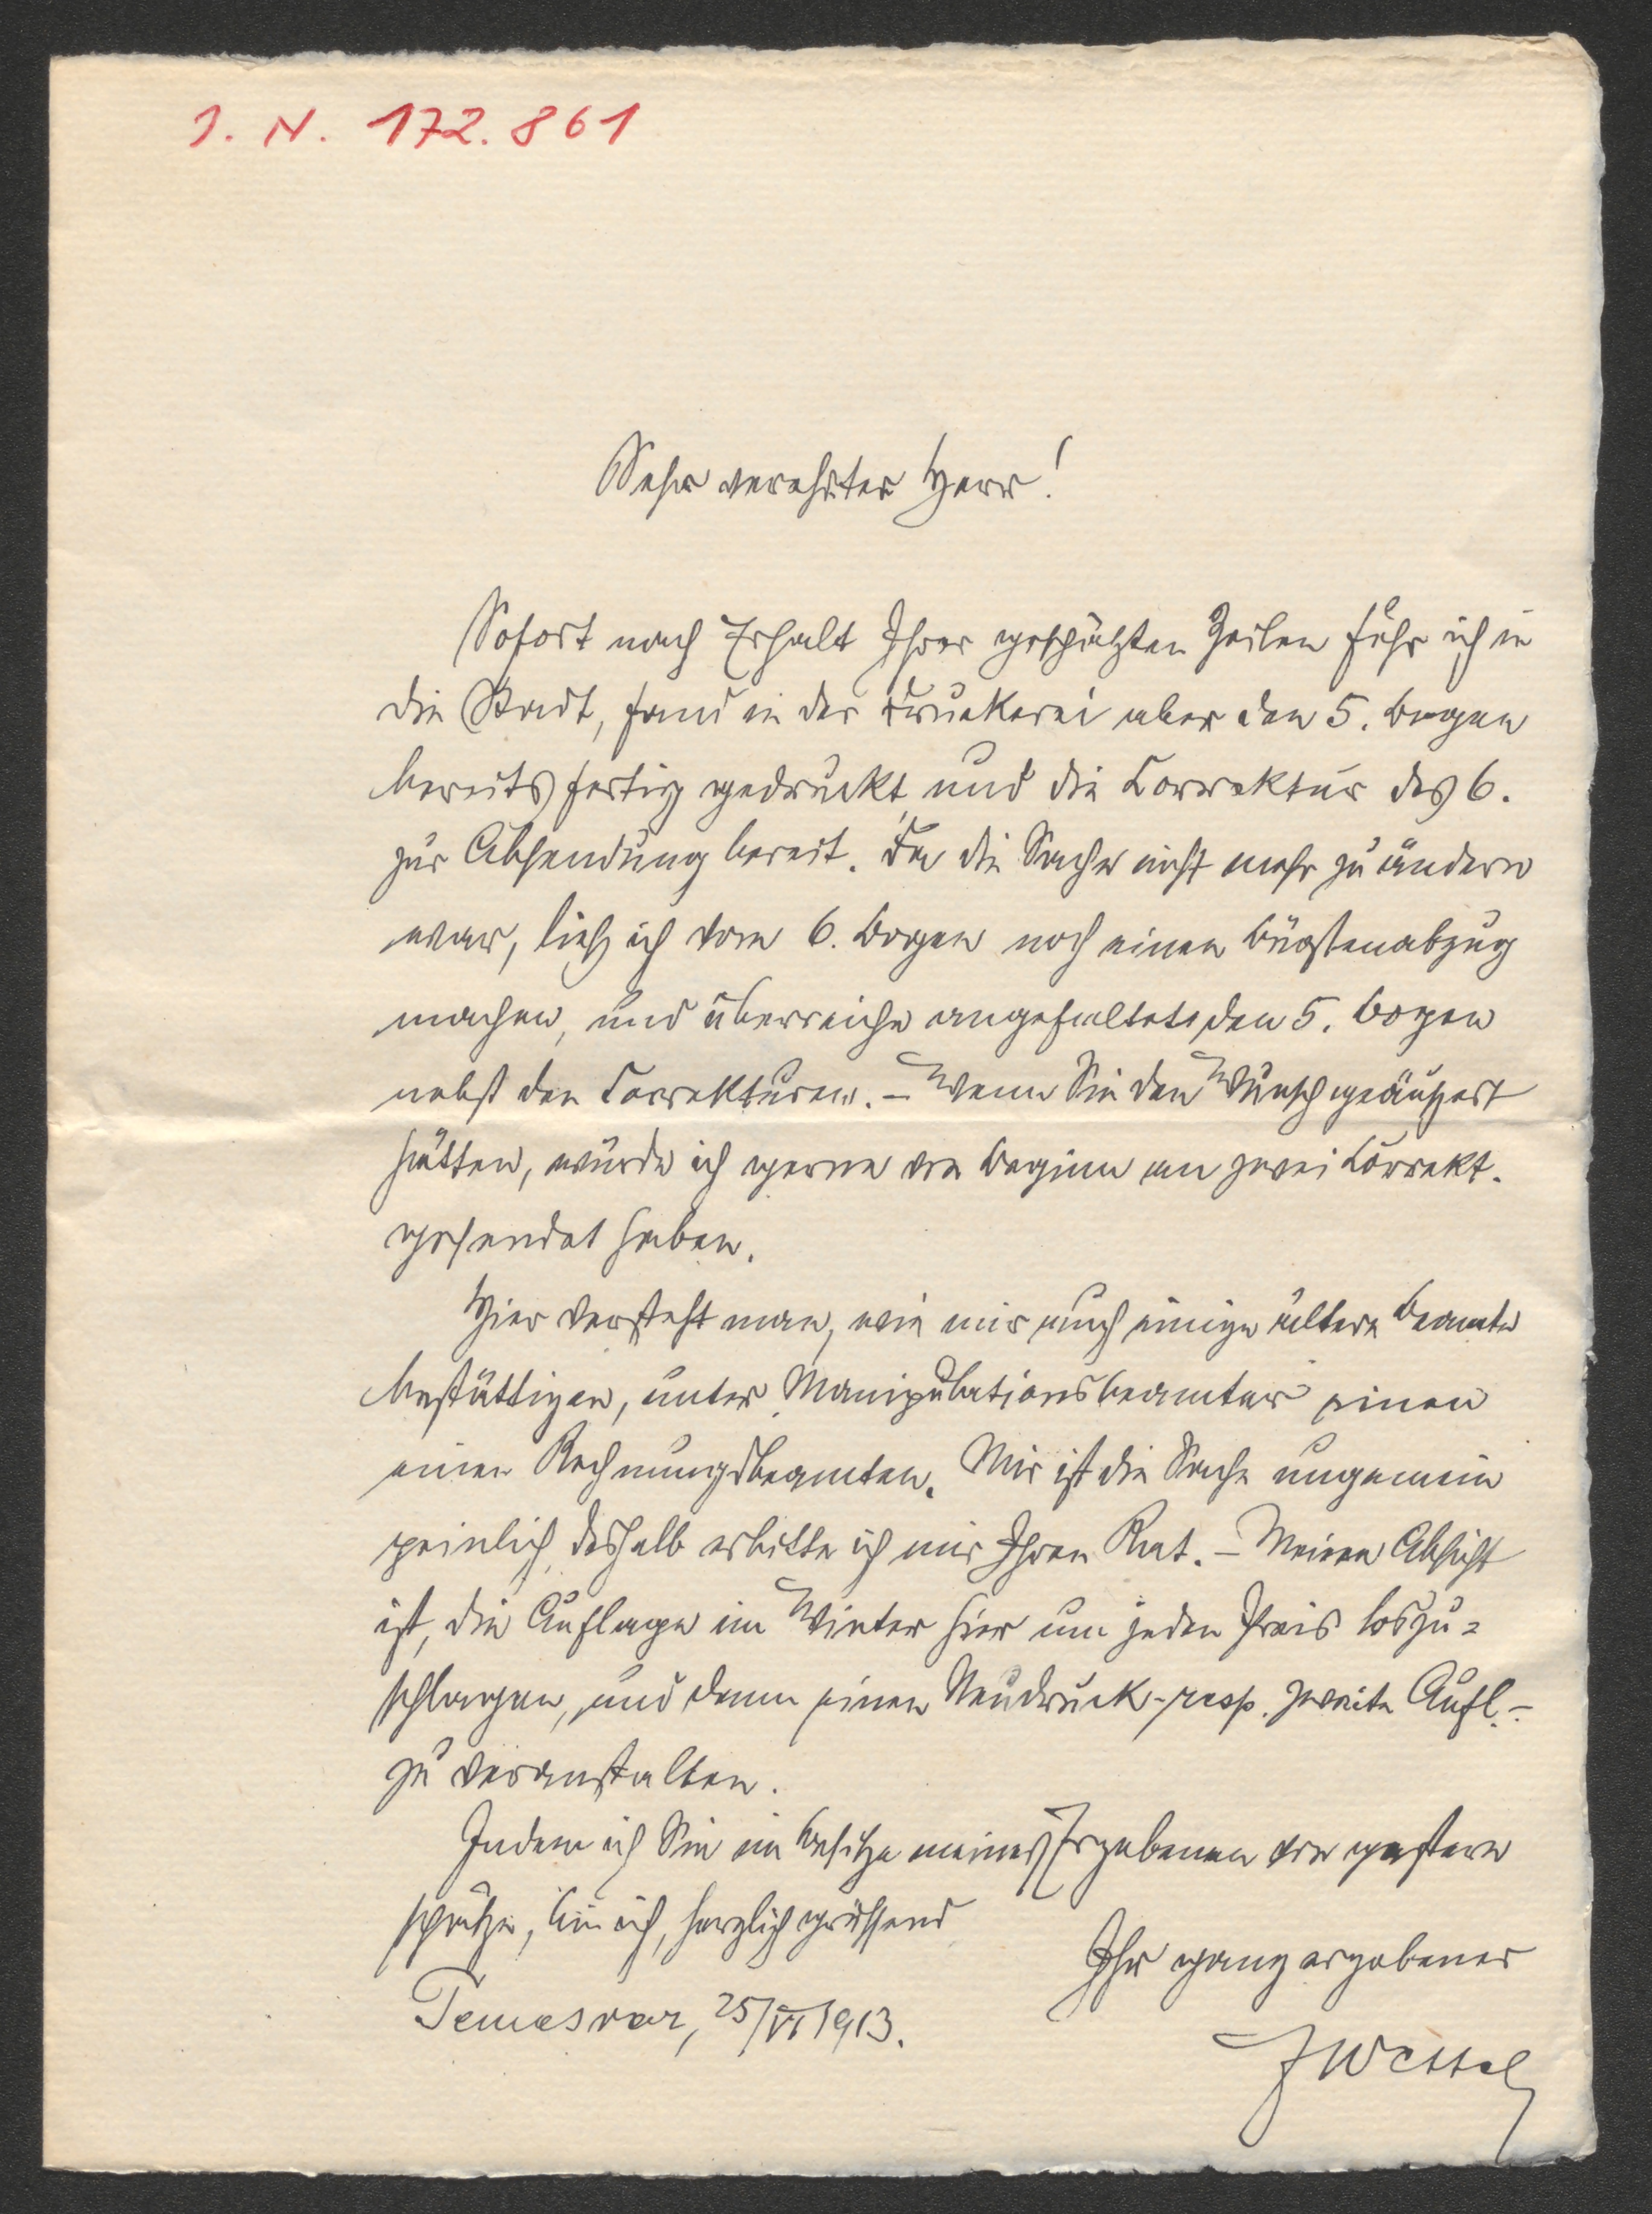 J. N. 172.861
Sehr verehrter Herr!
Sofort nach Erhalt Ihrer geschätzten Zeilen fuhr ich in
die Stadt, fand in der Druckerei aber den 5. Bogen
bereits fertig gedruckt, und die Correktur des 6.
zur Absendung bereit. Da die Sache nicht mehr zu ändern
war, ließ ich vom 6. Bogen noch einen Bürstenabzug
machen, und überreiche den 5. Bogen
nebst den Correkturen. – Wenn Sie den Wunsch geäußert
hätten, würde ich gerne von Beginn an zwei Correkt.
gesendet haben.
Hier versteht man, wie mir auch einige ältere Beamte
bestättigen, unter Manipulationsbeamter einen
einen Rechnungsbeamten. Mir ist die Sache ungemein
peinlich, deshalb erbitte ich mir Ihren Rat. – Meine Absicht
ist, die Auflage im Winter hier um jeden Preis loszu=
schlagen, und dann einen Neudruck – resp. zweite Aufl. –
zu veranstalten.
Indem ich Sie im Besitze meines Ergebenen von gestern
schätze, bin ich, herzlich grüssend
Ihr ganz ergebener
Temesvar, 25/VI 1913.
JWettel